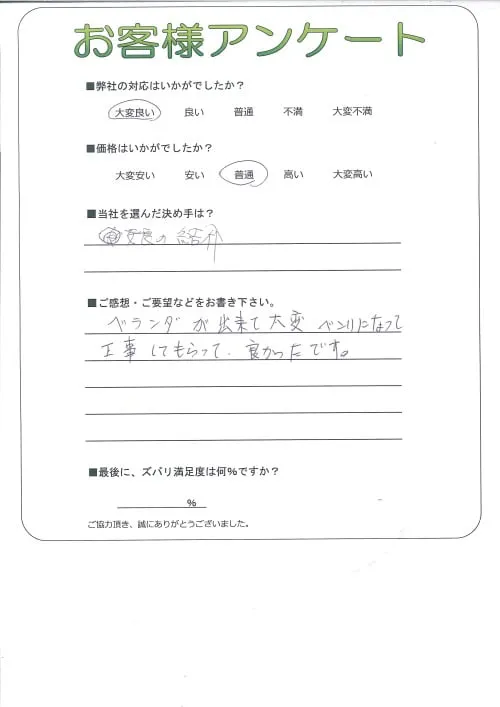 お客様アンケート
■弊社の対応はいかがでしたか？
大変良い 良い 普通 不満 大変不満
■価格はいかがでしたか？
大変安い 安い 普通 高い 大変高い
■当社を選んだ決め手は？
の 紹介
■ご感想・ご要望などをお書き下さい。
ベランダが出来て大変 ベンリになって
工事してもらって、良かったです。
■最後に、ズバリ満足度は何％ですか？
％
ご協力頂き、誠にありがとうございました。